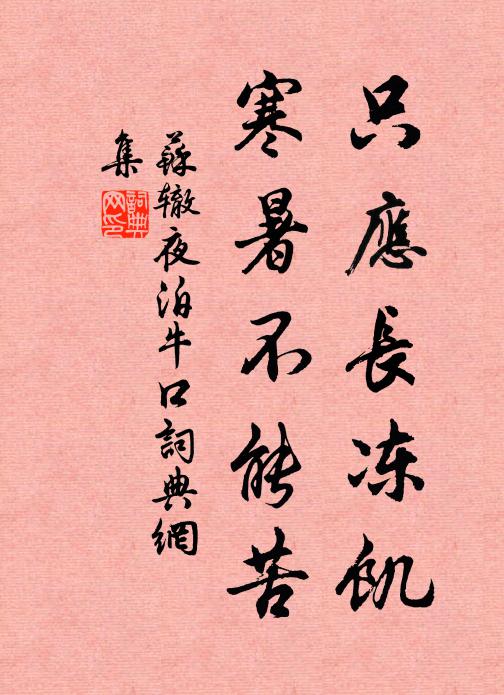 只應長冻飢
寒暑不能苦
蘇辙夜泊牛口詞典網
集
詞典网印